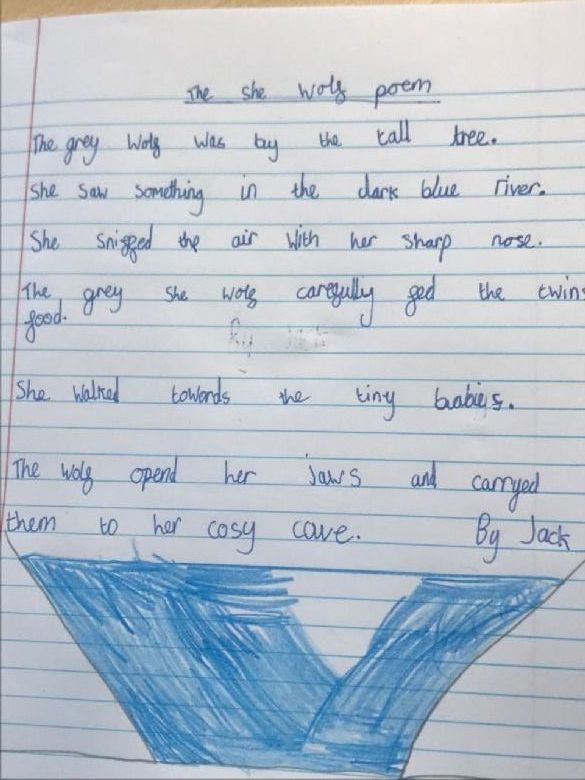 The she wolf poem
The grey wolf was by the tall tree.
She saw something in the dark blue river.
She sniffed the air with her sharp nose.
The grey she wolf carefully fed the twins
food.
She walked towards the tiny babies.
The wolf opend her jaws and carryed
them to her cosy cave. By Jack